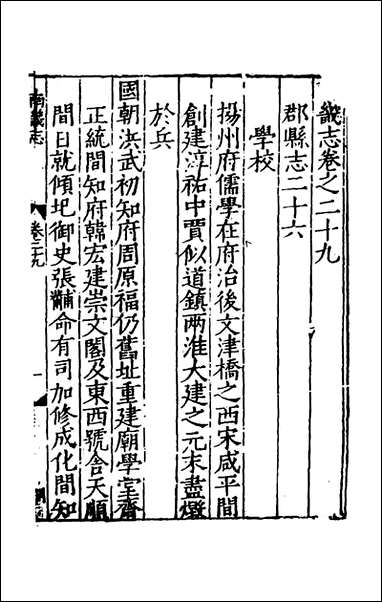 畿志卷之二十九
郡縣志二十六
學校
揚州府儒學在府治後文津橋之西宋咸平間
創建淳祐中賈似道鎮兩淮大建之元末盡燬
於兵
國朝洪武初知府周原福仍舊址重建廟學堂齋
正統間知府韓宏建崇文閣及東西號舍天順
間日就傾圯御史張黼命有司加修成化間知
南畿志
卷二十九
一